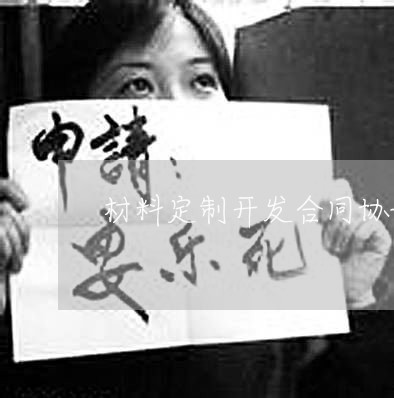 申請：
材料定制开发合同协
安乐死